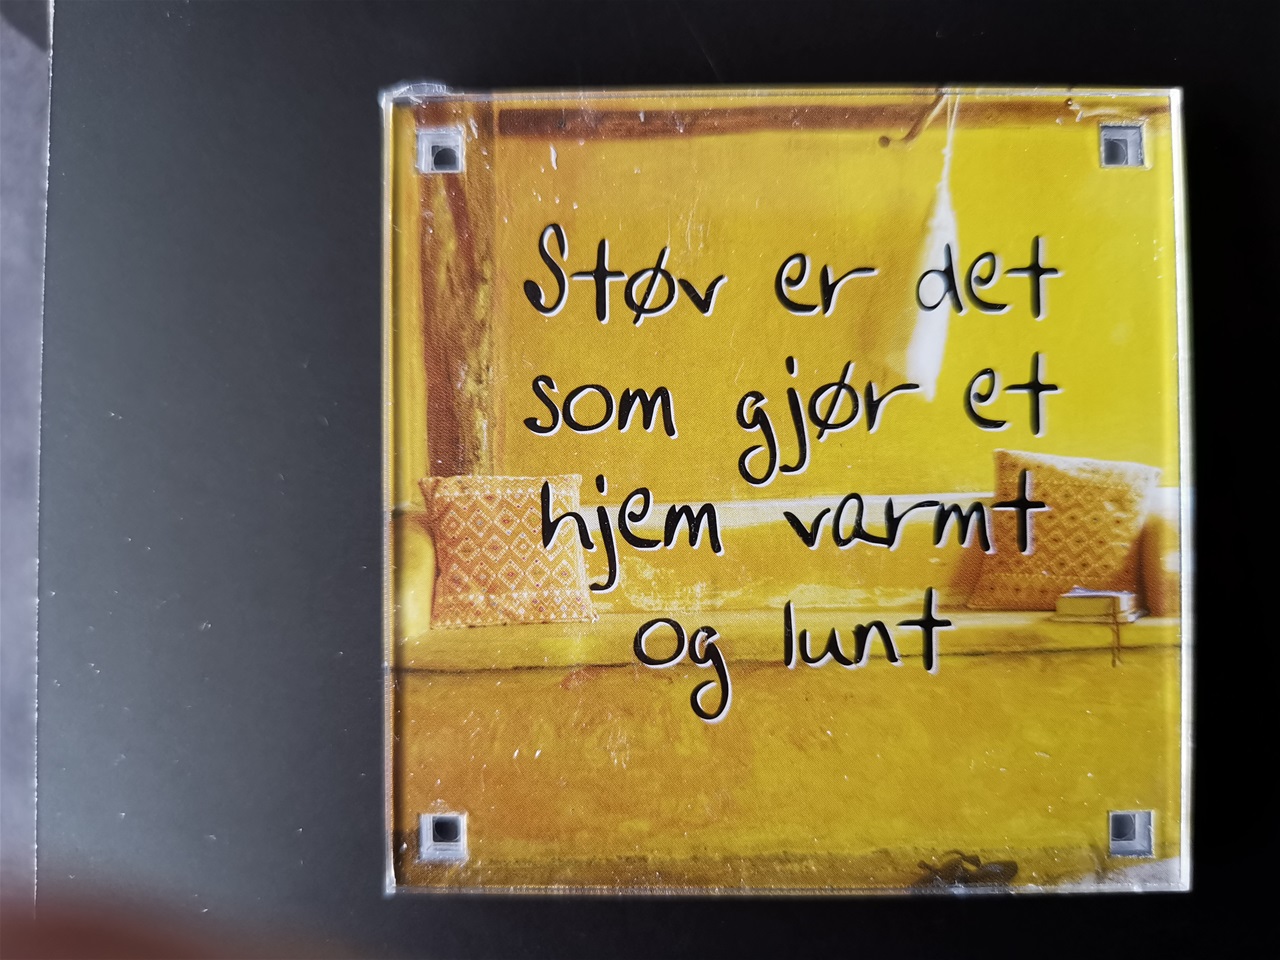 Støv er det
som gjør et
hjem varmt
og lunt